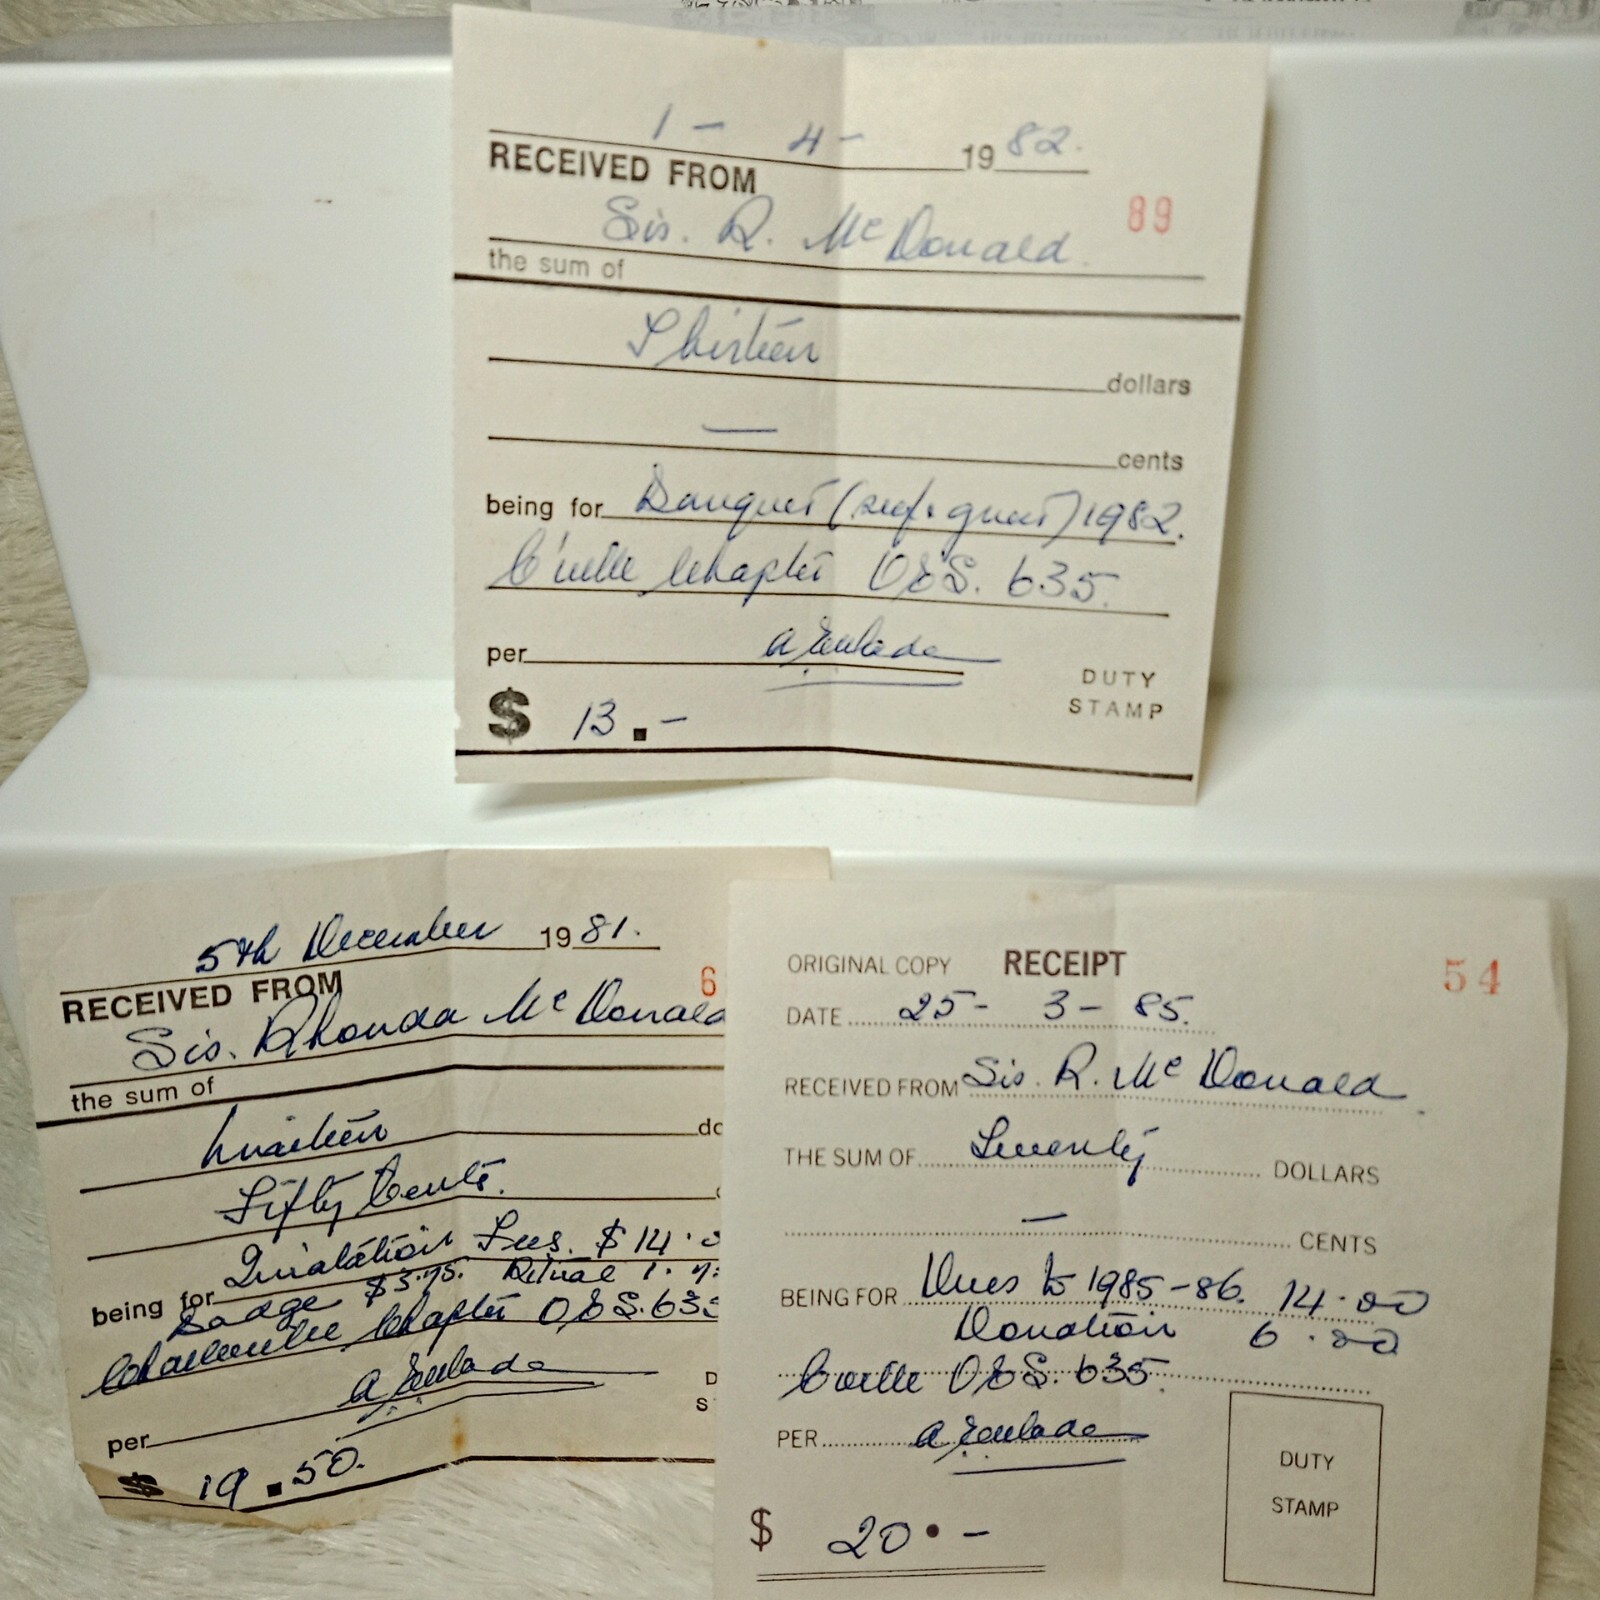 1 - 4 - 1982.
RECEIVED FROM
89
Sis. R. McDonald.
the sum of
Thirteen
dollars
—
cents
being for Banquet (self. guest) 1982.
C'ville Chapter OES. 635.
per
DUTY
STAMP
$ 13.-
5th December 1981.
RECEIVED FROM
6
Sis. Rhonda McDonald
the sum of
Nineteen
Fifty Cents.
being for Initiation Fees. $14.0
Badge $3.75. Ritual 1.75
Charleville Chapter OES. 635
per
D
S
$ 19.50.
ORIGINAL COPY RECEIPT 54
DATE 25 - 3 - 85.
RECEIVED FROM Sis. R. McDonald
THE SUM OF Twenty DOLLARS
— CENTS
BEING FOR Dues to 1985-86. 14.00
Donation 6.00
C'ville OES. 635.
PER
DUTY
STAMP
$ 20.-